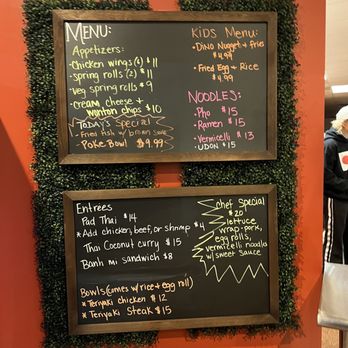 MENU:
Appetizers:
• Chicken wings (6) $ 11
• spring rolls (2) $ 11
• veg spring rolls $ 9
• cream cheese &
wonton chips $ 10
Today's Special
• Fried fish w/ brown sauce
• Poke Bowl $ 9.99
KiDS MENU:
• Dino Nugget & Fries
$ 4.99
• Fried Egg & Rice
$ 4.99
NOODLES:
• Pho $ 15
• Ramen $ 15
• Vermicelli $ 13
• UDON $ 15
Entrées
Pad Thai $14
* Add chicken, beef, or shrimp $4
Thai Coconut curry $ 15
Banh mi sandwich $8
Bowls (comes w/ rice & egg roll)
* Teriyaki chicken $ 12
* Teriyaki Steak $ 15
chef Special
$20
lettuce
wrap- pork,
egg rolls,
vermicelli noodls
w/ sweet sauce